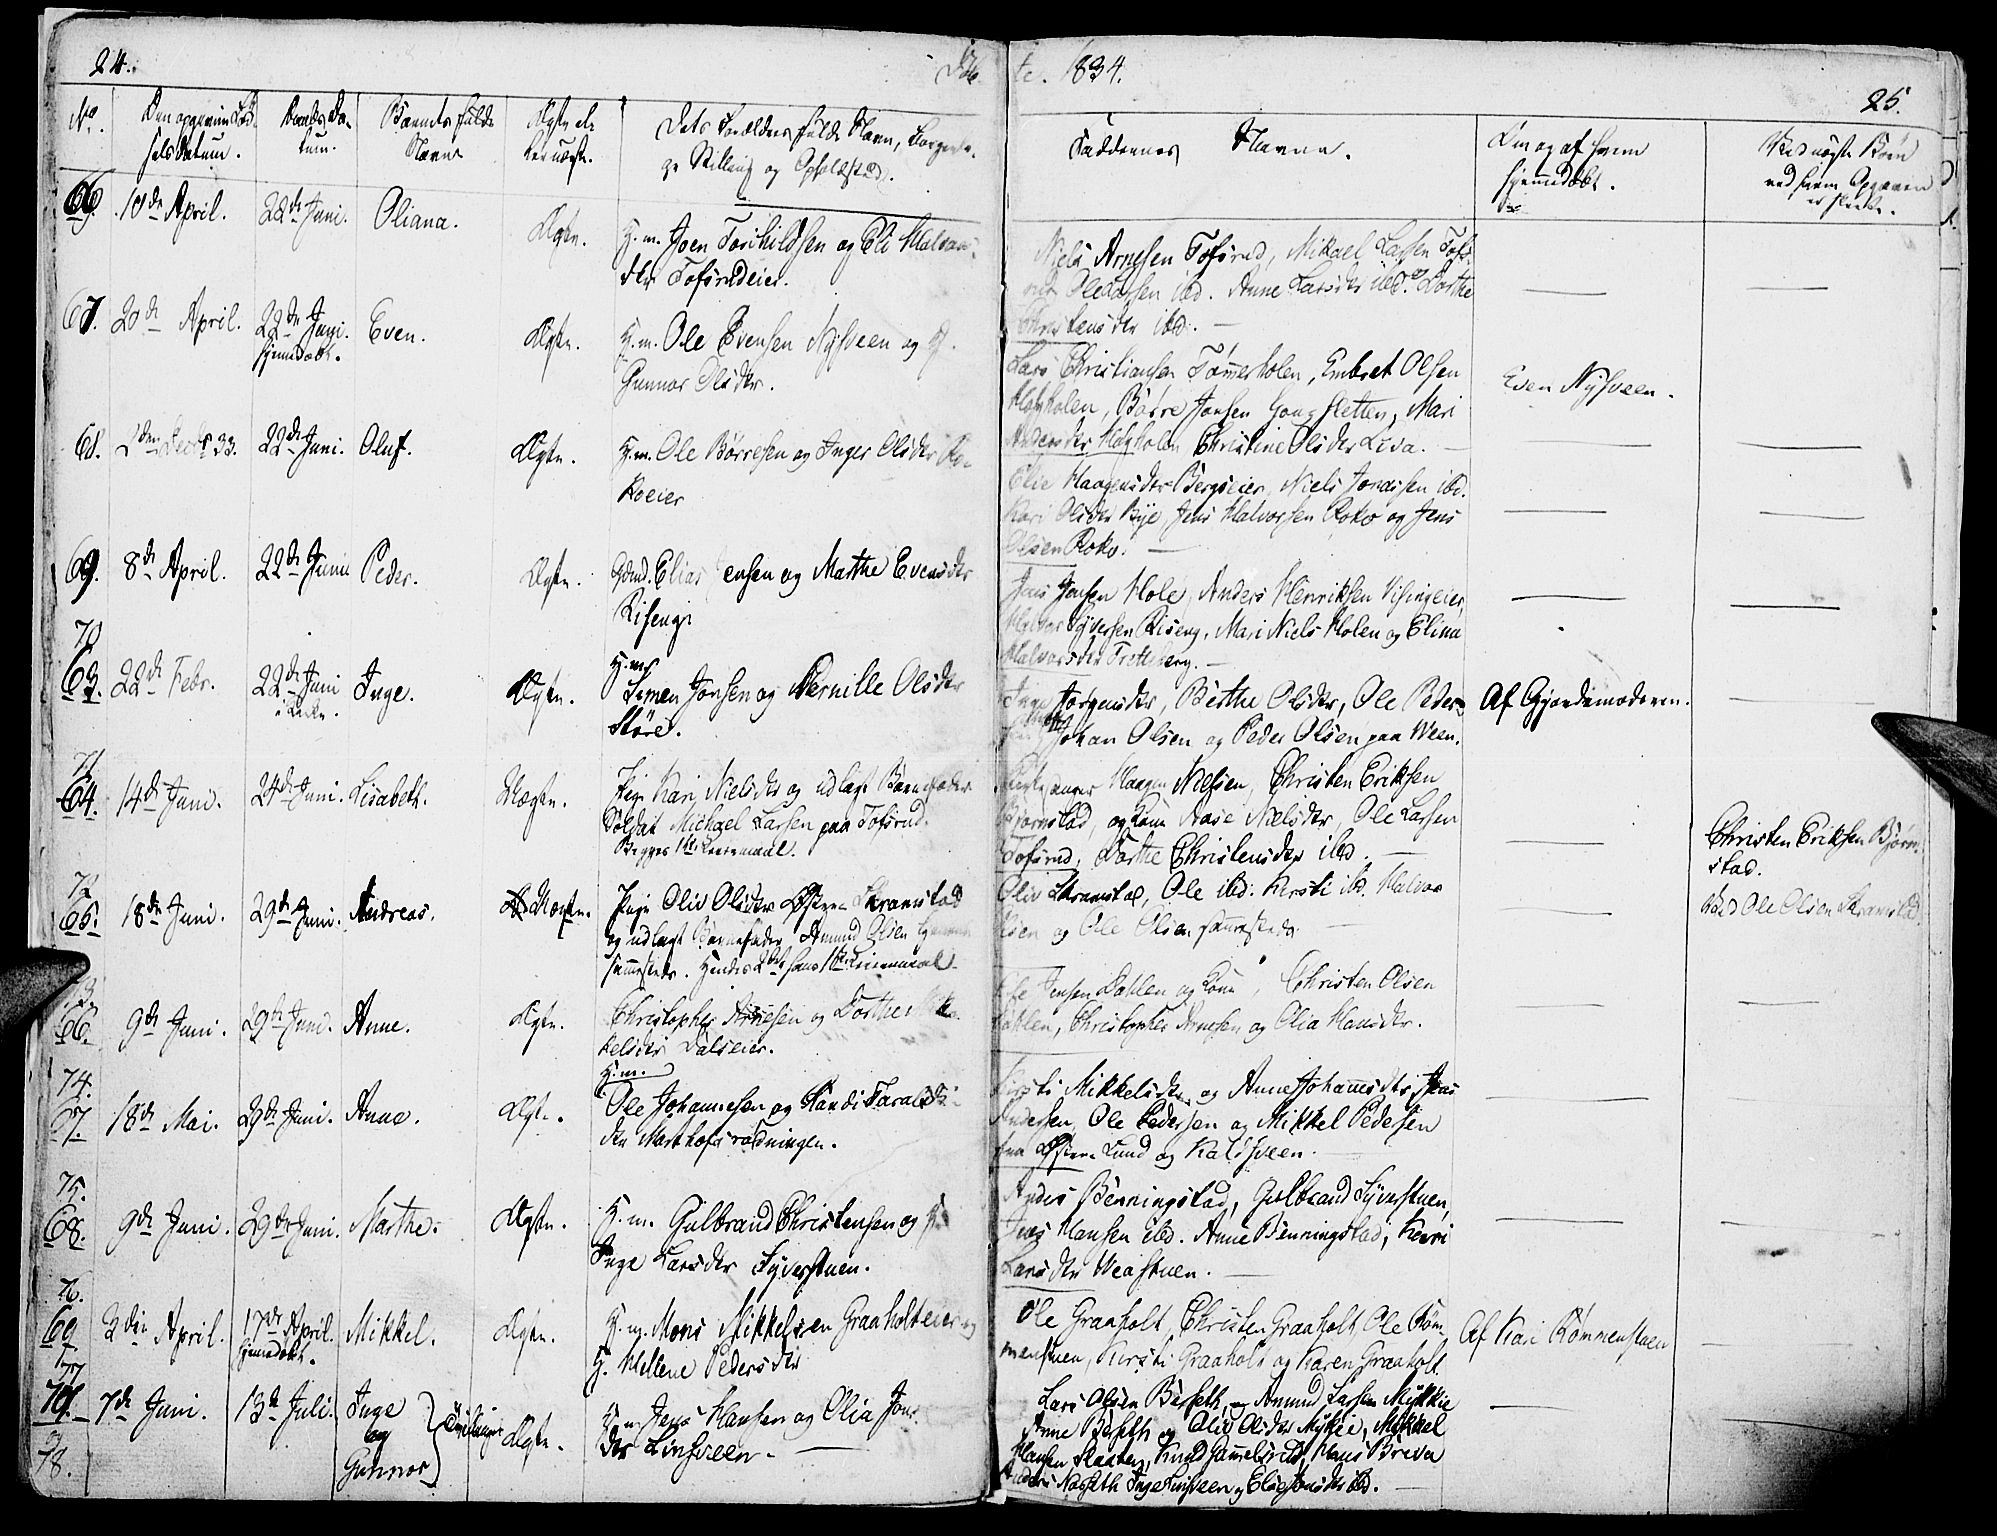 24.
Døbte. 1834.
25.
No.
Den opgivne Fød-
selsdatum.
Daabsda-
tum.
Barnets fulde
Navn
Ægte el.
Uægte.
Dets Forældres fulde Navn, Borgerli-
ge Stilling og Opholdsted.
Faddernes Navne.
Om og af hvem
hjemmedøbt.
Ved uægte Børn
ved hvem Opgaven
er skeet.
66. 10de April. 22de Juni. Oliana. Ægte. H.m. Joen Torchildsen og Eli Halvors-
dtr Tofsrudeier.
Niels Arnesen Tofsrud, Mikael Larsen Tofs-
rud Ole Larsen ibd. Anne Larsdtr ibd. og Dorthe
Christensdtr ibd. —
67. 20de April. 22de Juni. Even. Ægte. H.m. Ole Evensen Nysveen og H.
hjemmedøbt.
Gunnor Olsdtr.
Lars Christiansen Tømmerholen, Embret Olsen
Høgholen, Børre Jonsen Gougsletten, Mari
Andersdtr Høgholen Christine Olsdtr Lisa. —
Even Nysveen.
68. 2den 33. 22de Juni. Oluf. Ægte. H.m. Ole Børresen og Inger Olsdtr Ro-
koeier
Elie Haagensdtr Bergseier, Niels Jonassen ibd.
Kari Olsdtr Bye, Jens Halvorsen Roko og Jens
Olsen Roko. —
69. 8de April. 22de Juni Peder. Ægte. Gdmd. Elias Jensen og Marthe Evensdtr
Riseng.
Jens Jonsen Hole, Anders Henriksen Visingeier,
Halvor Syversen Riseng, Mari Niels Holen og Elina
Halvorsdtr Tretteberg. —
70
63. 22de Febr. 22de Juni Inge. Ægte. H.m. Simen Jonsen og Pernille Olsdtr
i Kirke.
Støre.
Jørgensdtr, Berthe Olsdtr, Ole Peder-
Johan Olsen og Peder Olsen paa Ween.
Af Gjordemoderen.
71
64. 14de Juni. 24de Juni. Lisabeth. Uægte. Pige Kari Nielsdtr og udlagt Barnefader
Soldat Michael Larsen paa Tofsrud.
Begges 1ste Leiermaal.
Kirkesanger Haagen Nielsen, Christen Eriksen
Bjørnstad, og Kone Aase Nielsdtr, Ole Larsen
Tofsrud, Dorthe Christensdtr ibd. —
Christen Eriksen Bjørn-
stad.
72
65. 18de Juni. 29de Juni. Andreas. Uægte. Pige Oliv Olsdtr Østre Skramstad
og udlagt Barnefader Amund Olsen
sammesteds. Hendes 2det hans 1ste Leiermaal.
Oliv Skramstad, Ole ibd. Kersti ibd. Halvor
Olsen og Ole Olsen sammesteds —
Ved Ole Olsen Skramstad
73
66. 9de Juni. 29de Juni. Anne. Ægte. Christopher Arnesen og Dorthea Mik-
kelsdtr Dalseier.
Jensen Dahlen og Kone, Christen Olsen
Dahlen, Christopher Arnesen og Olia Hansdtr.
74.
67. 18de Mai. 29de Juni. Anne. Ægte. H.m.
Ole Johannesen og Randi Tarals-
dtr Morthofsrødningen.
Kirsti Mikkelsdtr og Anne Johannisdtr, Jens
Andersen, Ole Pedersen og Mikkel Pedersen
paa Østre Lund og Kaldsveen. —
75.
68. 9de Juni. 29de Juni. Marthe. Ægte. H.m. Gulbrand Christensen og H.
Inge Larsdtr Syverstuen.
Andis Benningstad, Gulbrand Syverstuen,
Jens Hansen ibd. Anne Benningstad, Kari
Larsdtr Weastuen. —
76.
69 2den April. 17de April. Mikkel. Ægte. H.m. Mons Mikkelsen Graaholteier og
hjemmedøbt.
H. Hellene Pedersdtr
Ole Graaholt, Christen Graaholt, Ole Røm-
menstuen, Kersti Graaholt og Karen Graaholt
Af Kari Rømmenstuen
77
70. 7de Juni. 13de Juli. Inge Ægte. H.m. Jens Hansen og Olia Jons-
og
78.
og
Gunnor
Tvillinger
dtr Linsveen. —
Lars Olsen Berseth, og Amund Larsen Mykkie
Anne Berseth og Oliv Olsdtr Mykie, Mikkel
Hansen Slaaten, Knud Hans Breva
Naffseth Inge Linsveen og Elie Jonsdtr ibd. —